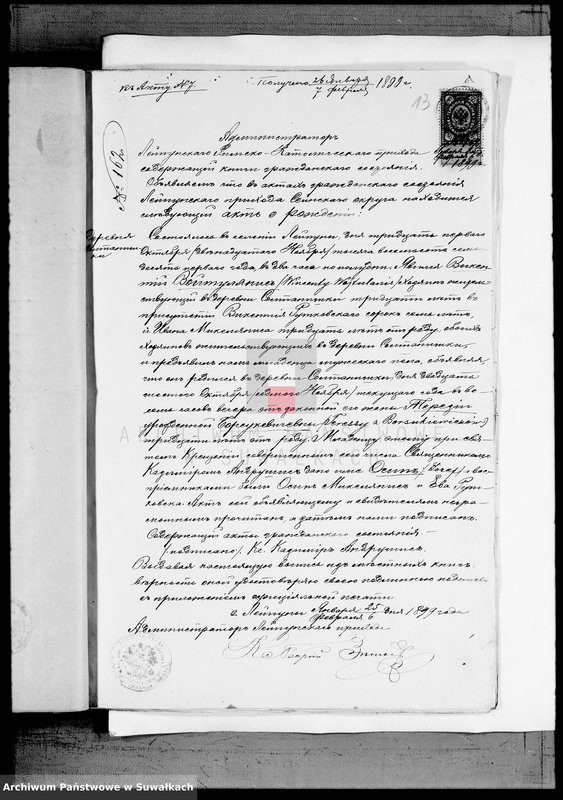 къ Акту № 7
Получено 26 Января / 7 Февраля 1899 г.
13
№ 162
Администраторъ
Лейпунскаго Римско-Католическаго прихода
содержащій книги гражданскаго состоянія.
Объявляемъ что въ актахъ гражданскаго состоянія
Лейпунскаго прихода Сейнскаго округа находится
слѣдующій актъ о рожденіи:
Деревня
Состоялось въ селеніи Лейпуны, дня тридцать перваго
Октября /двѣнадцатаго Ноября/ тысяча восемьсотъ семь
десять перваго года, въ два часа по полудни. Явился Викен
тій Войтулянисъ /Wincenty Wojtulanis/ хозяинъ жительствующій въ деревнѣ
тридцати лѣтъ въ
присутствіи Викентія Рутковскаго сорокъ семь лѣтъ,
и Ивана Микелёниса тридцати лѣтъ отъ роду, обоихъ
хозяевъ жительствующихъ въ деревнѣ
и предъявилъ намъ младенца мужескаго пола, объявляя,
что онъ родился въ деревнѣ дня двадцать
шестого Октября /седьмого Ноября/ текущаго года въ во
семь часовъ вечера отъ законной его жены Терезіи
урожденной
тридцати лѣтъ отъ роду. Младенцу этому при свя
томъ Крещеніи совершенномъ сего числа Священникомъ
Кадиміромъ Андрушисъ дано имя Осипъ /Józef/, а вос
пріемниками были Осипъ и Ева Рут
ковска. Актъ сей объявляющему и свидѣтелямъ негра
мотнымъ прочитанъ, а затѣмъ нами подписанъ.
Содержащій акты гражданскаго состоянія —
/подписано/ Кс. Кадиміръ Андрушисъ.
Выдавая настоящую выпись изъ мѣстныхъ книгъ,
вѣрность оной удостовѣряю своею подлинною подписью
съ приложеніемъ оффиціальной печати.
с. Лейпуны Января 25 / Февраля 6 дня 1899 года
Администраторъ Лейпунскаго прихода
Archiwum Państwowe w Suwałkach